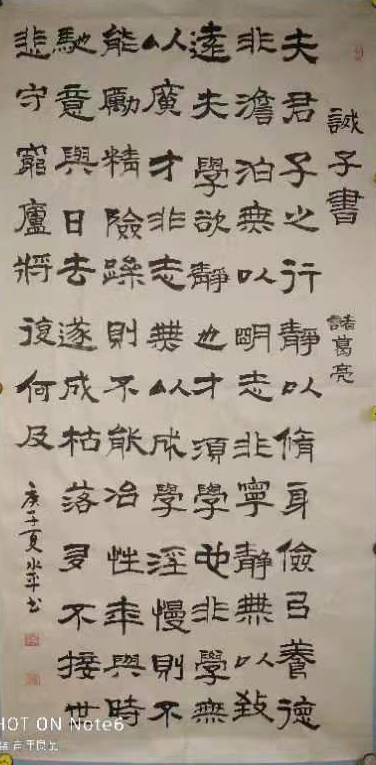 誡子書
諸葛亮
夫君子之行靜以脩身儉㠯養德
非澹泊無以明志非寧靜無以致
遠夫學欲靜也才須學也非學無
以廣才非志無以成學淫慢則不
能勵精險躁則不能冶性年與時
馳意與日去遂成枯落多不接世
悲守窮廬將復何及
庚子夏水平书
HOT ON Note6